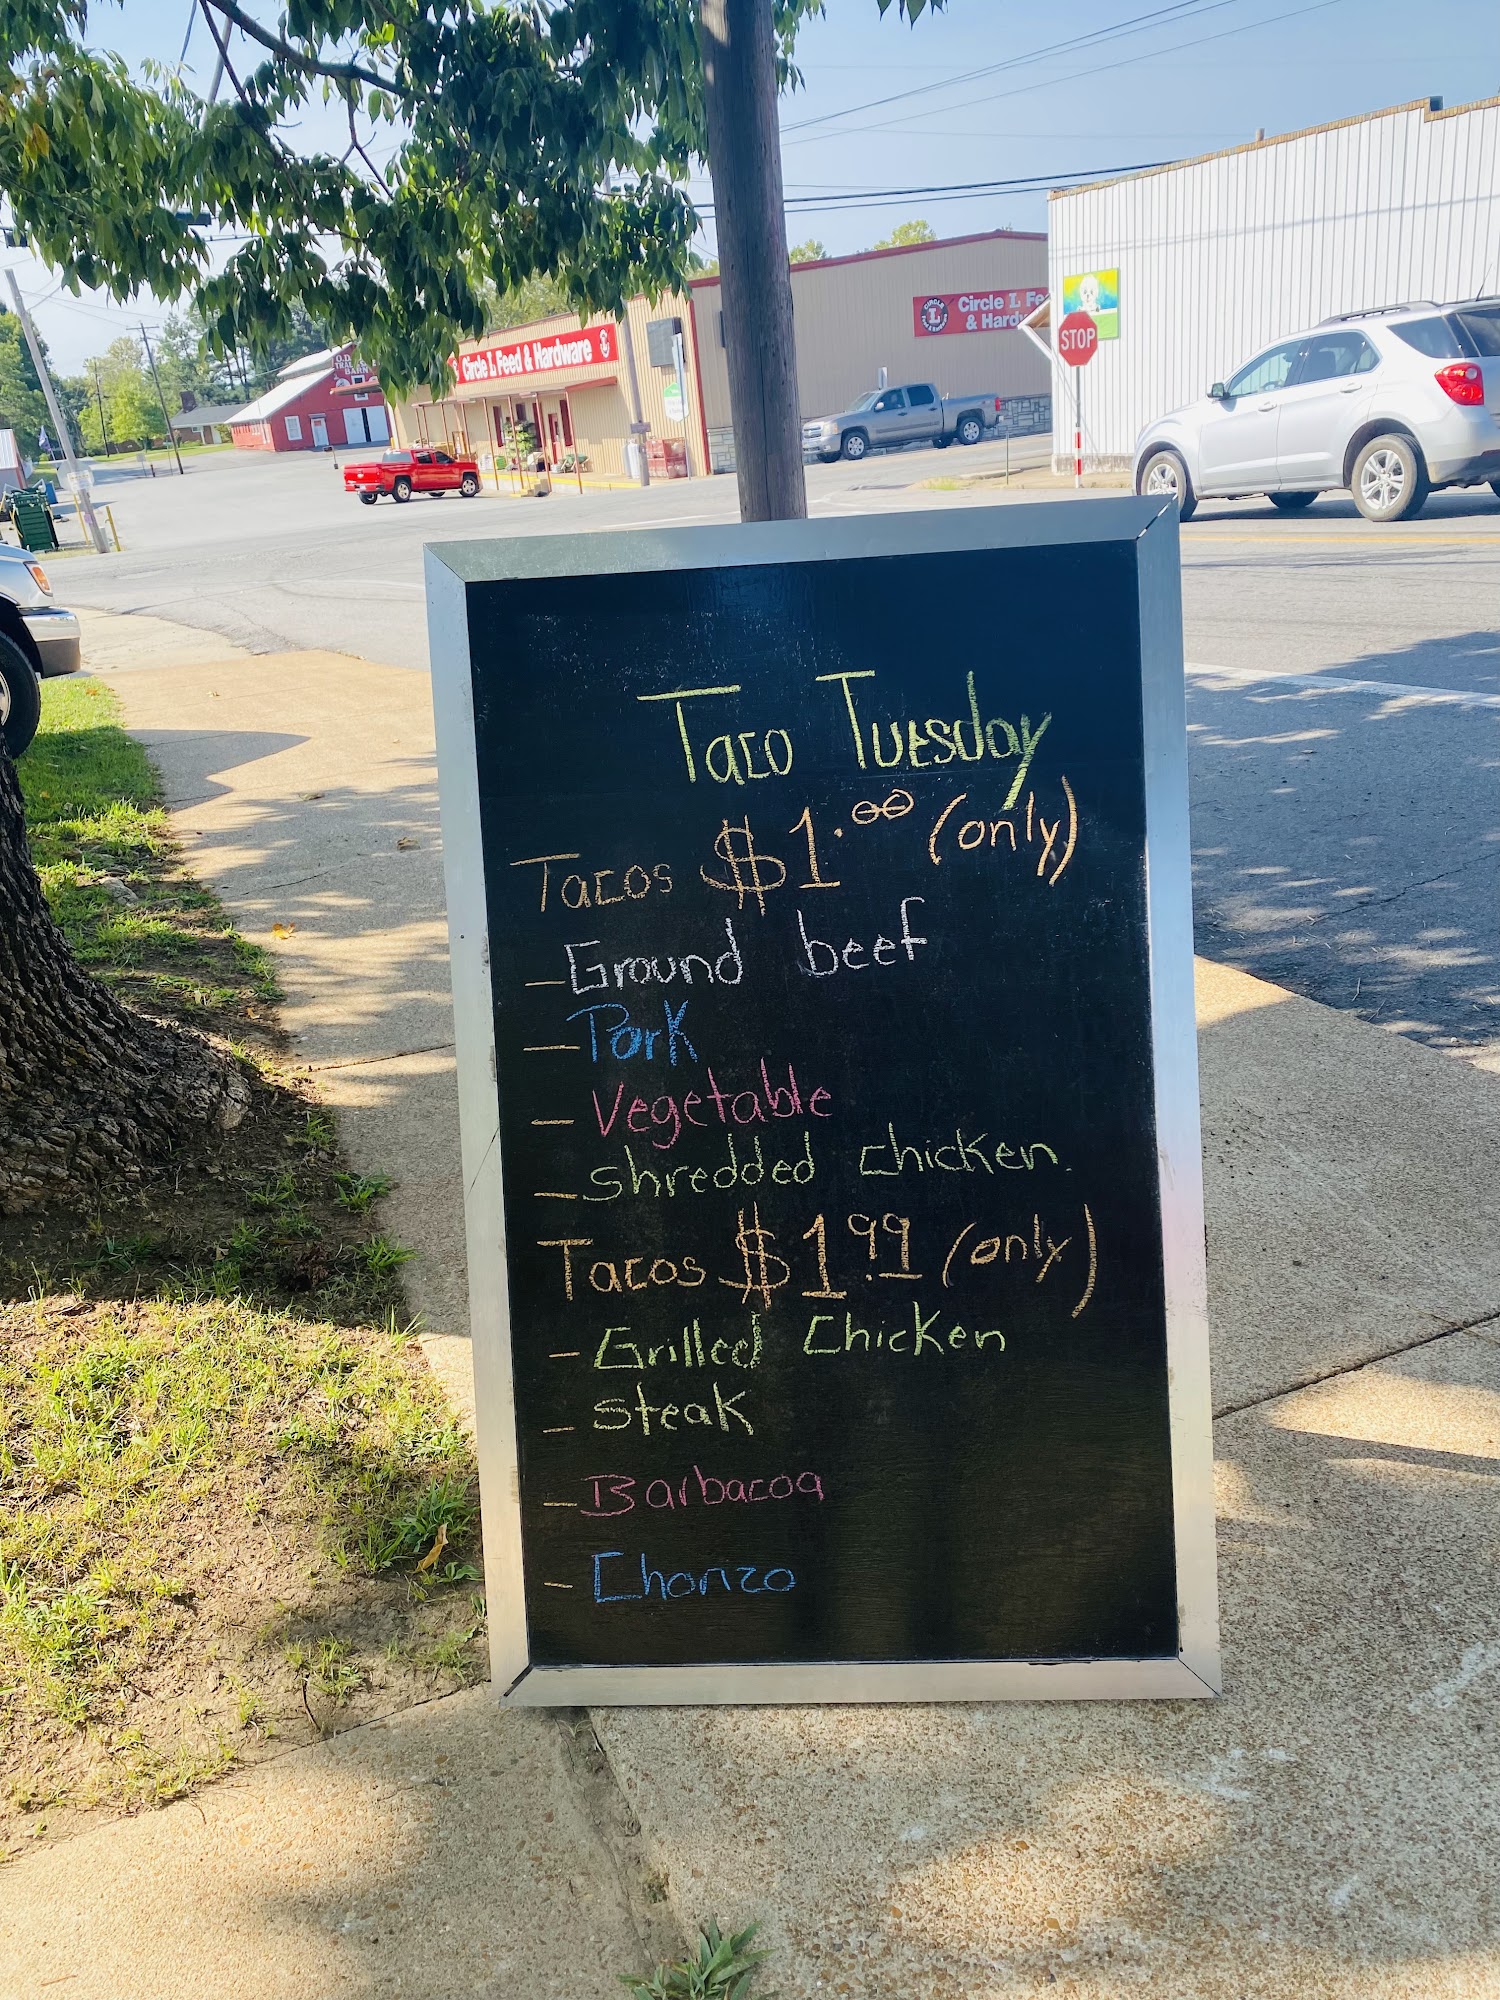 O.D.
BARN
Circle L Feed & Hardware
CIRCLE
L
Circle L Fe
& Hardw
STOP
Taco Tuesday
Tacos $1.00 (only)
- Ground beef
- Pork
- Vegetable
- shredded chicken.
Tacos $1.99 (only)
- Grilled Chicken
- steak
- Barbacoa
- Chorizo